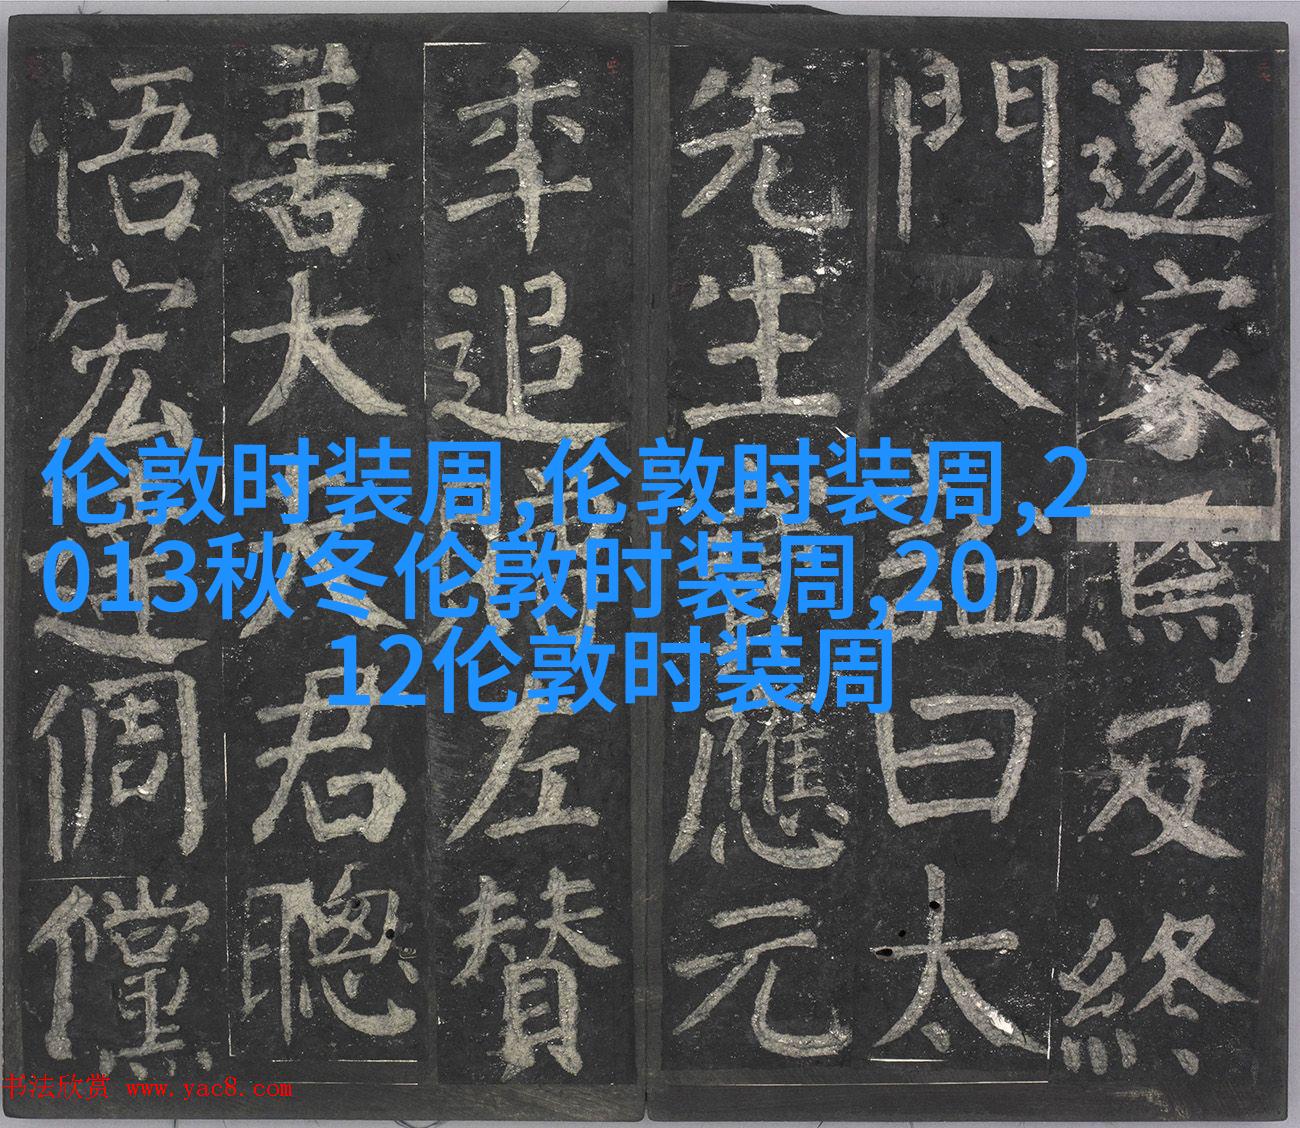 遂家焉及終
門人諡曰太
先生寶應元
年追贈左贊
善大夫君聰
悟宏達倜儻
伦敦时装周,伦敦时装周,2
013秋冬伦敦时装周,20
12伦敦时装周
书法欣赏 www.yac8.com